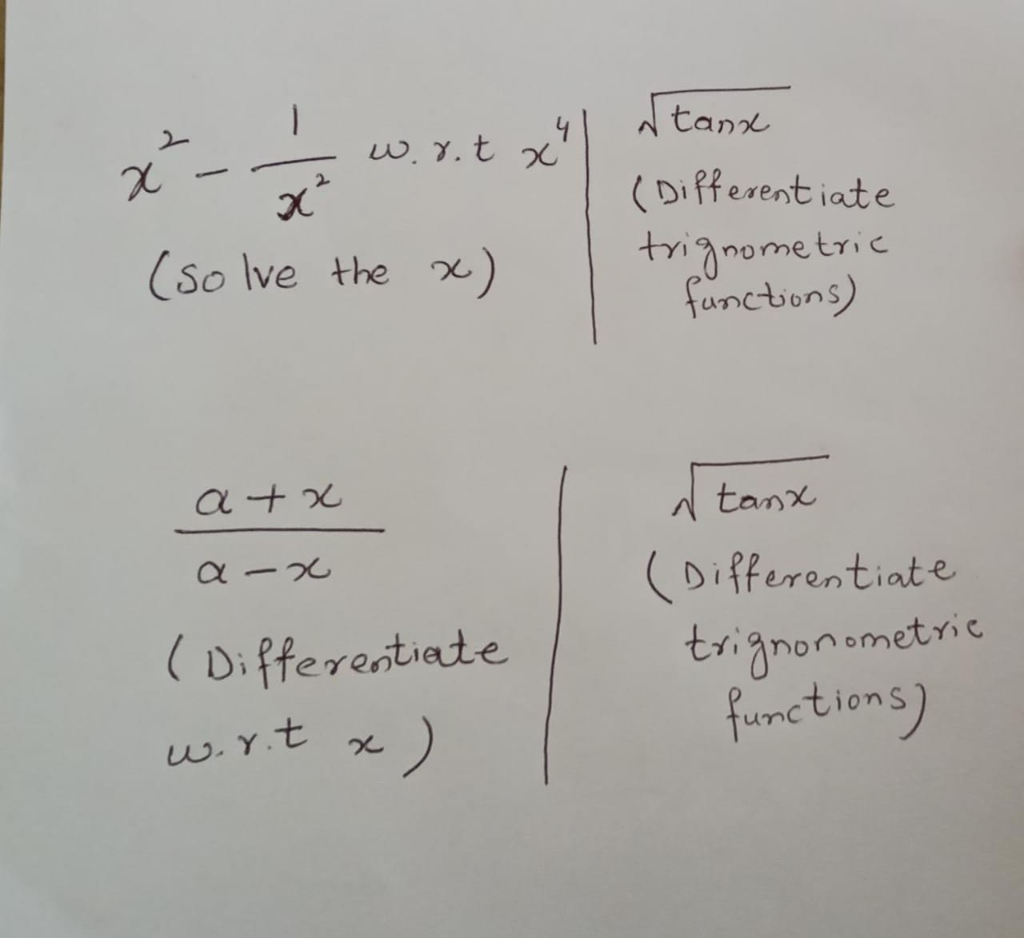 x² - 1/x² w.r.t x⁴
(solve the x)
√tanx
(Differentiate
trignometric
functions)
a+x
a-x
(Differentiate
w.r.t x)
√tanx
(Differentiate
trignonometric
functions)